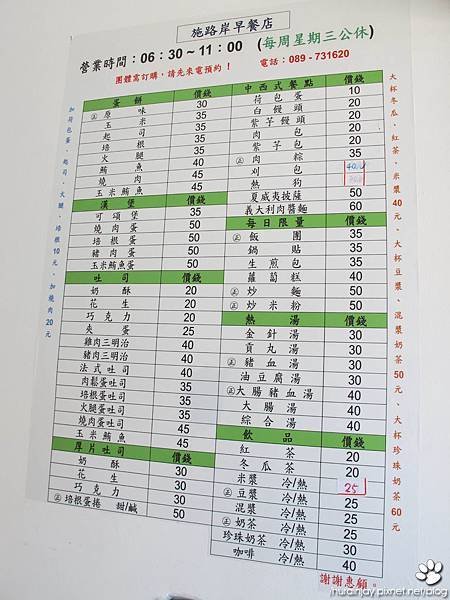 施路岸早餐店
營業時間：06：30～11：00 (每周星期三公休)
團體需訂購，請先來電預約！ 電話：089-731620
加荷包蛋、起司、火腿、培根10元、加燒肉20元
蛋餅 價錢
㊣原味 30
玉米 35
起司 35
培根 35
火腿
鮪魚 40
燒肉 45
玉米鮪魚
漢堡 價錢
可頌堡 35
燒肉蛋 50
培根蛋
豬肉蛋
玉米鮪魚蛋 50
吐司 價錢
奶酥 20
花生 20
巧克力 20
夾蛋 25
雞肉三明治 40
豬肉三明治 40
法式吐司 40
肉鬆蛋吐司
培根蛋吐司
火腿蛋吐司
燒肉蛋吐司 45
玉米鮪魚 45
厚片吐司 價錢
奶酥 30
花生 30
巧克力 30
㊣培根蛋捲 甜/鹹 50
中西式餐點 價錢
荷包蛋 10
白饅頭 20
紫芋饅頭 20
肉包 20
紫芋包 20
㊣肉粽 35
刈包
熱狗
夏威夷披薩 50
義大利肉醬麵 60
每日限量 價錢
㊣飯團 35
鍋貼 35
生煎包 35
蘿蔔糕 40
㊣炒麵 50
㊣炒米粉 50
熱湯 價錢
金針湯 30
貢丸湯 30
㊣豬血湯 30
油豆腐湯 30
㊣大腸豬血湯 40
大腸湯 40
綜合湯 40
飲品 價錢
紅茶 20
冬瓜茶 20
米漿 冷/熱 25
㊣豆漿 冷/熱 25
混漿 冷/熱 25
㊣奶茶 冷/熱 25
珍珠奶茶 冷/熱 30
咖啡 冷/熱 40
大杯冬瓜、紅茶、米漿40元、大杯豆漿、混漿奶茶50元、大杯珍珠奶茶60元
謝謝惠顧。
hurainjay.pixnet.net/blog